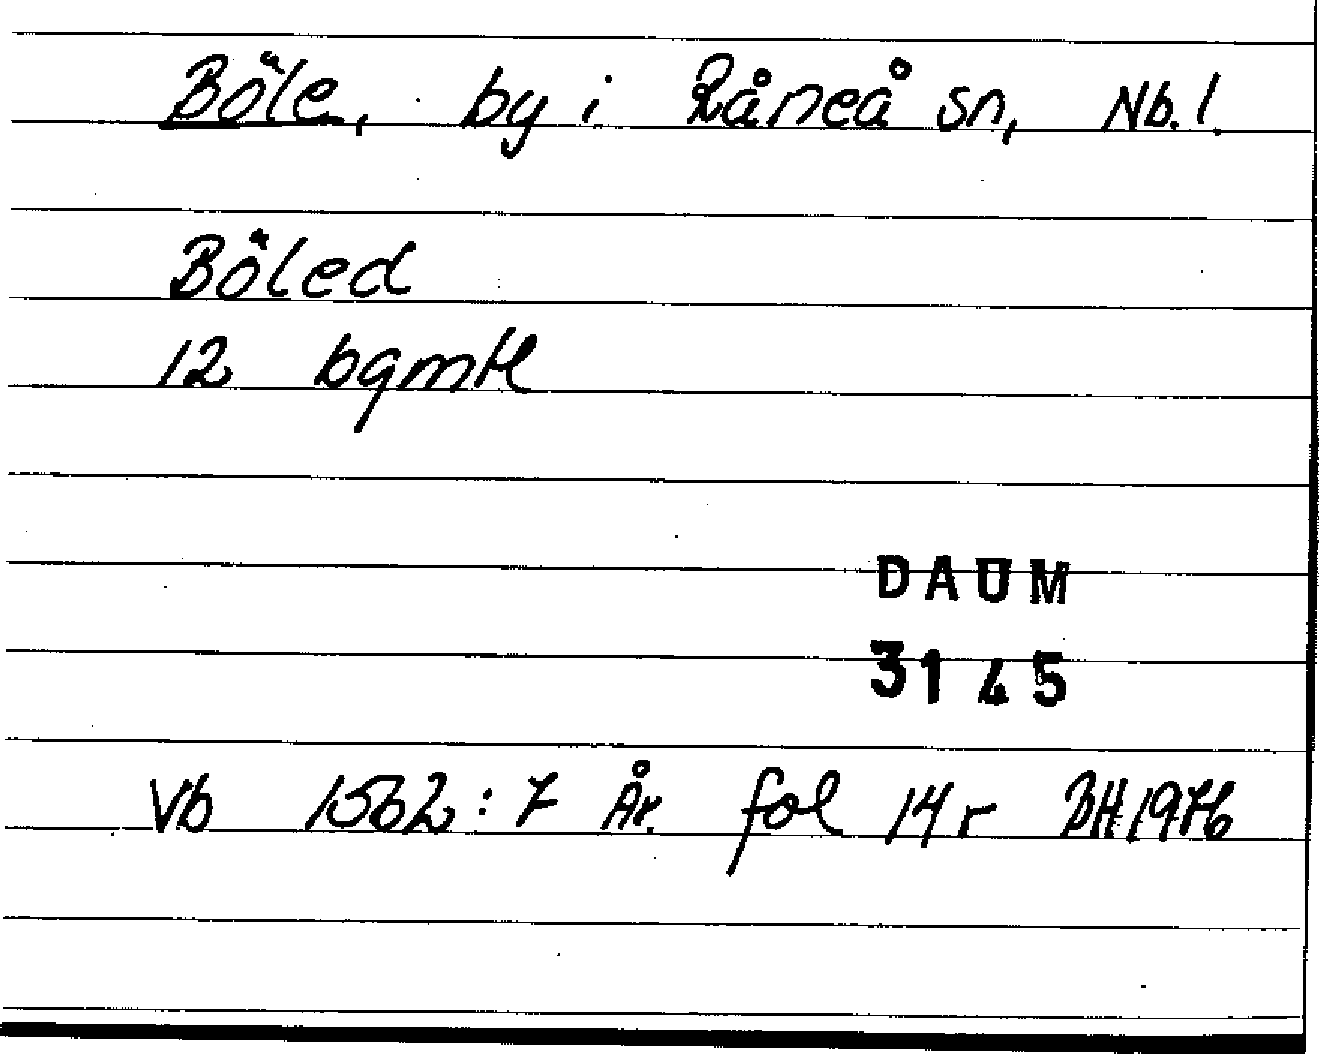 Böle, by i Råneå sn, Nb. l.
Böled
12 bqmtl
DAUM
3145
Vb 1562:7 År. fol 14 r BH 1976